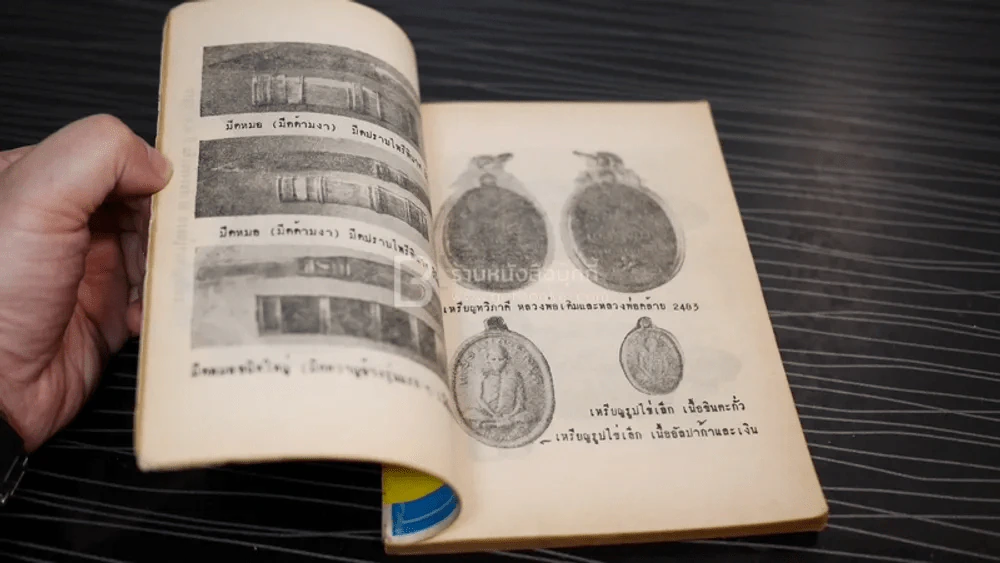 มีดหมอ (มีดด้ามงา) มีดปราบไพรีพินาศ
มีดหมอ (มีดด้ามงา) มีดปราบไพรีพินาศ
มีดหมอขนาดใหญ่
เหรียญทวิภาคี หลวงพ่อเดิมและหลวงพ่อคล้าย 2483
เหรียญรูปไข่เล็ก เนื้อชินตะกั่ว
เหรียญรูปไข่เล็ก เนื้ออัลปาก้าและเงิน
B ร้านหนังสือบุ๊คกี้